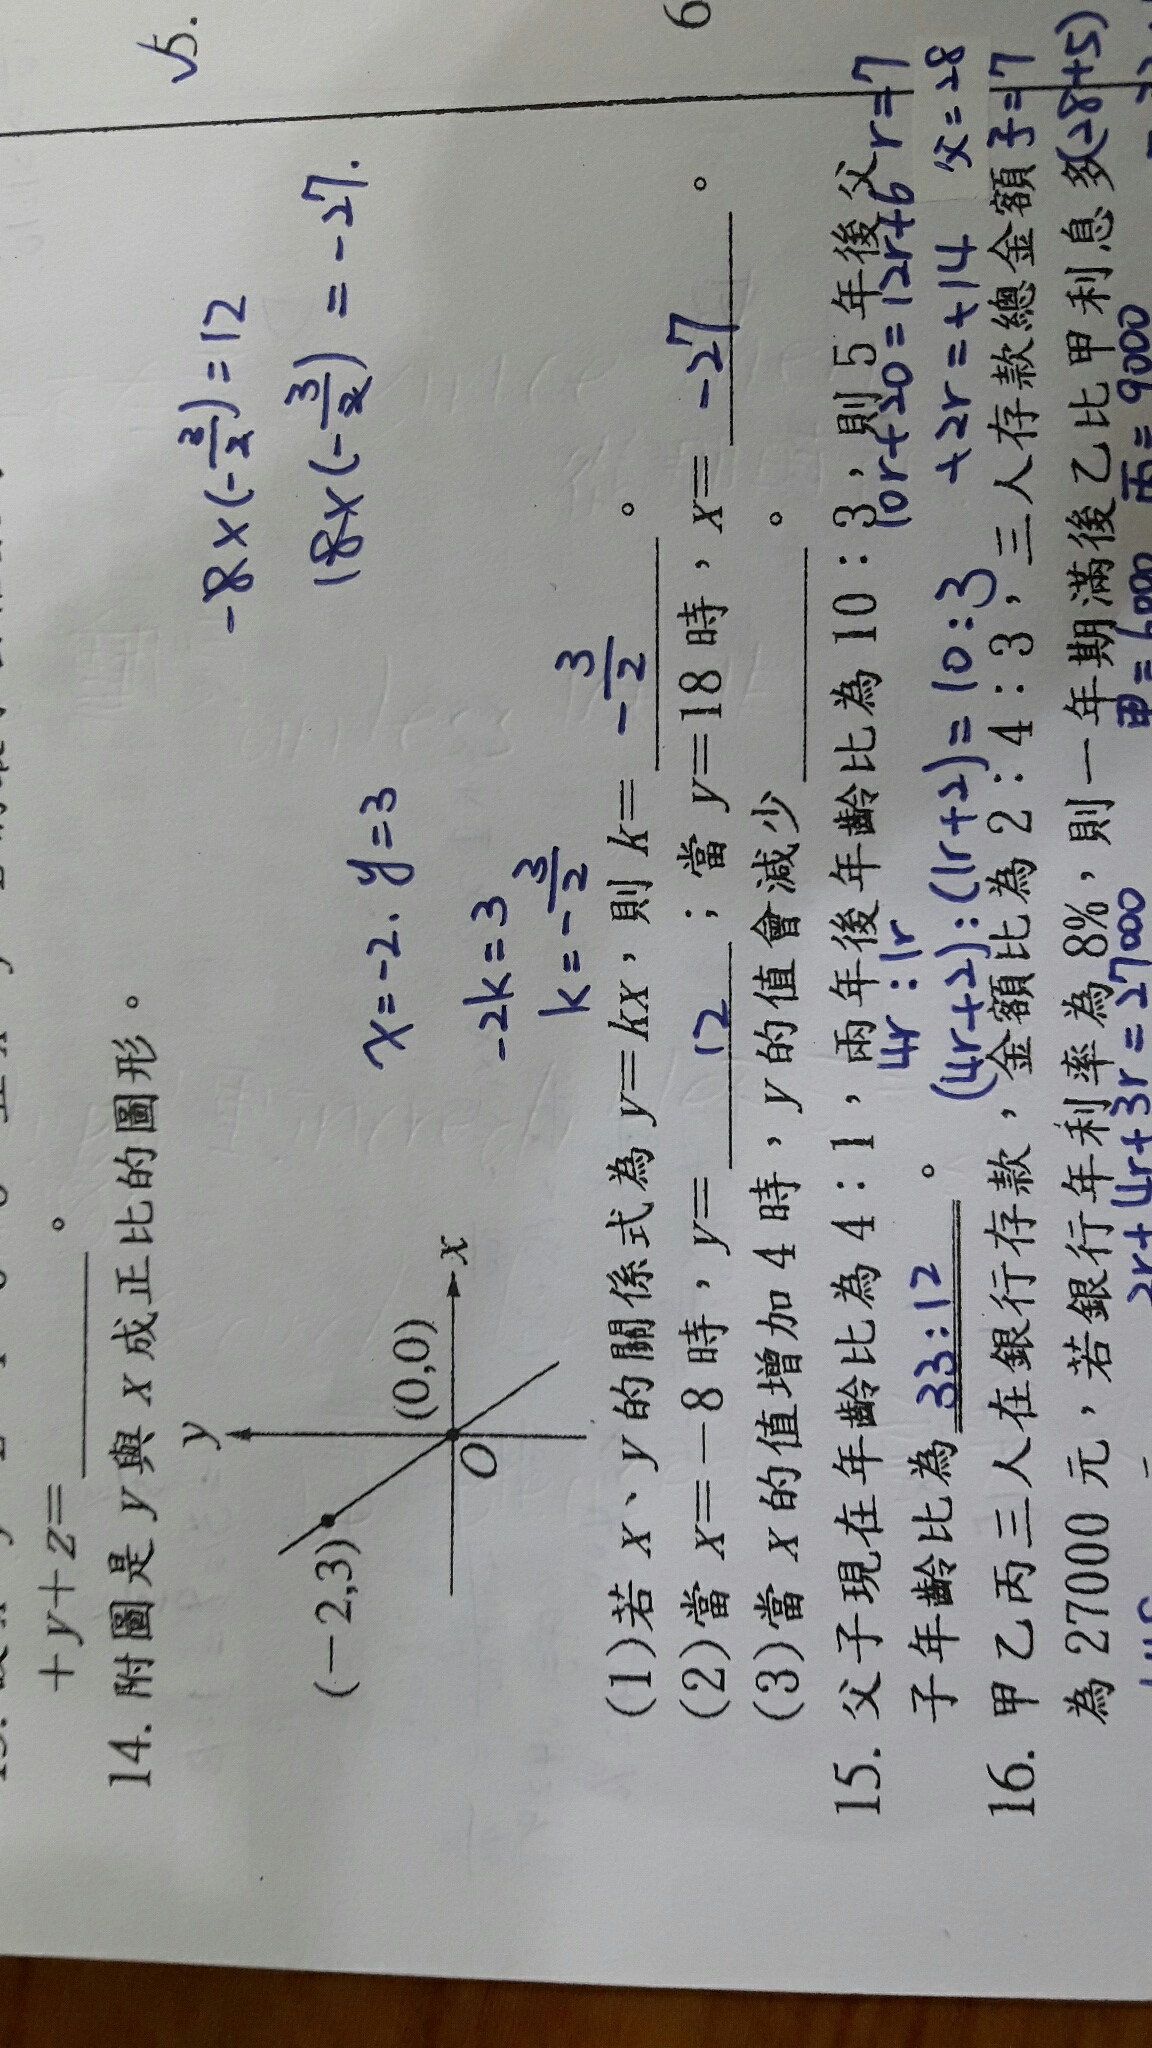 √5.
6
+y+z=________。
14. 附圖是 y 與 x 成正比的圖形。
-8×(-3/2)=12
18×(-3/2)=-27.
y
(-2,3)
(0,0)
O
x
x=-2. y=3
-2k=3
k=-3/2
(1)若 x、y 的關係式為 y=kx,則 k= -3/2 。
(2)當 x=-8 時,y= 12 ;當 y=18 時,x= -27 。
(3)當 x 的值增加 4 時,y 的值會減少________。
15. 父子現在年齡比為 4:1,兩年後年齡比為 10:3,則 5 年後父
4r:1r
10r+20=12r+6
r=7
子年齡比為 33:12 。
(4r+2):(1r+2)=10:3
+2r=+14
父=28
16. 甲乙丙三人在銀行存款,金額比為 2:4:3,三人存款總金額
子=7
為 27000 元,若銀行年利率為 8%,則一年期滿後乙比甲利息多
(28+5)
2r+4r+3r=27000
甲=6000
丙=9000